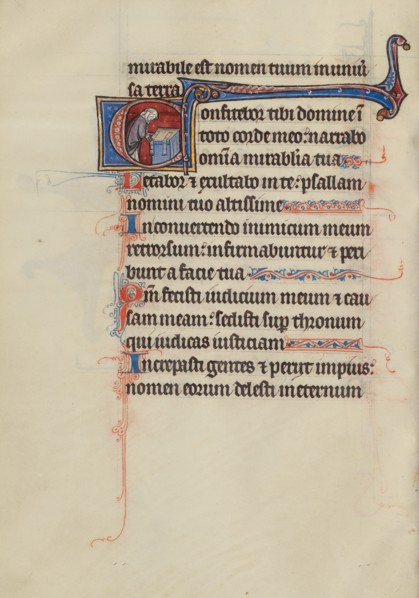 mirabile est nomen tuum in univ̅
sa terra
Confitebor tibi domine ī
toto corde meo: narrabo
om̅ia mirabilia tua
Letabor & exultabo in te: psallam
nomini tuo altissime
In convertendo inimicum meum
retrorsum: infirmabuntur & peri
bunt a facie tua
Qm̅ fecisti iudicium meum & cau
sam meam: sedisti sup thronum
qui iudicas iusticiam
Increpasti gentes & periit impius:
nomen eorum delesti in eternum